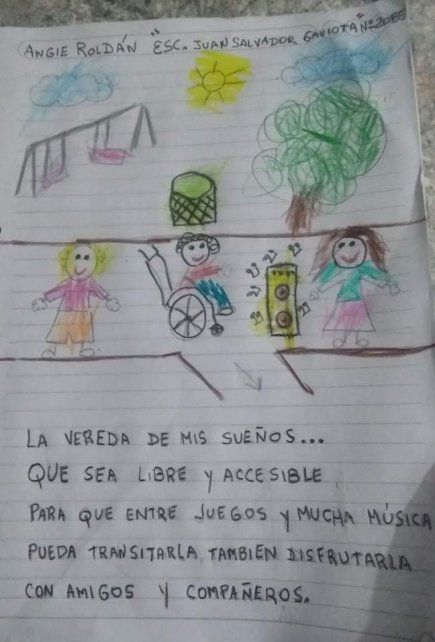 ANGIE ROLDÁN "ESC. JUAN SALVADOR GAVIOTA"
LA VEREDA DE MIS SUEÑOS...
QUE SEA LIBRE Y ACCESIBLE
PARA QUE ENTRE JUEGOS Y MUCHA MÚSICA
PUEDA TRANSITARLA, TAMBIÉN DISFRUTARLA
CON AMIGOS Y COMPAÑEROS.